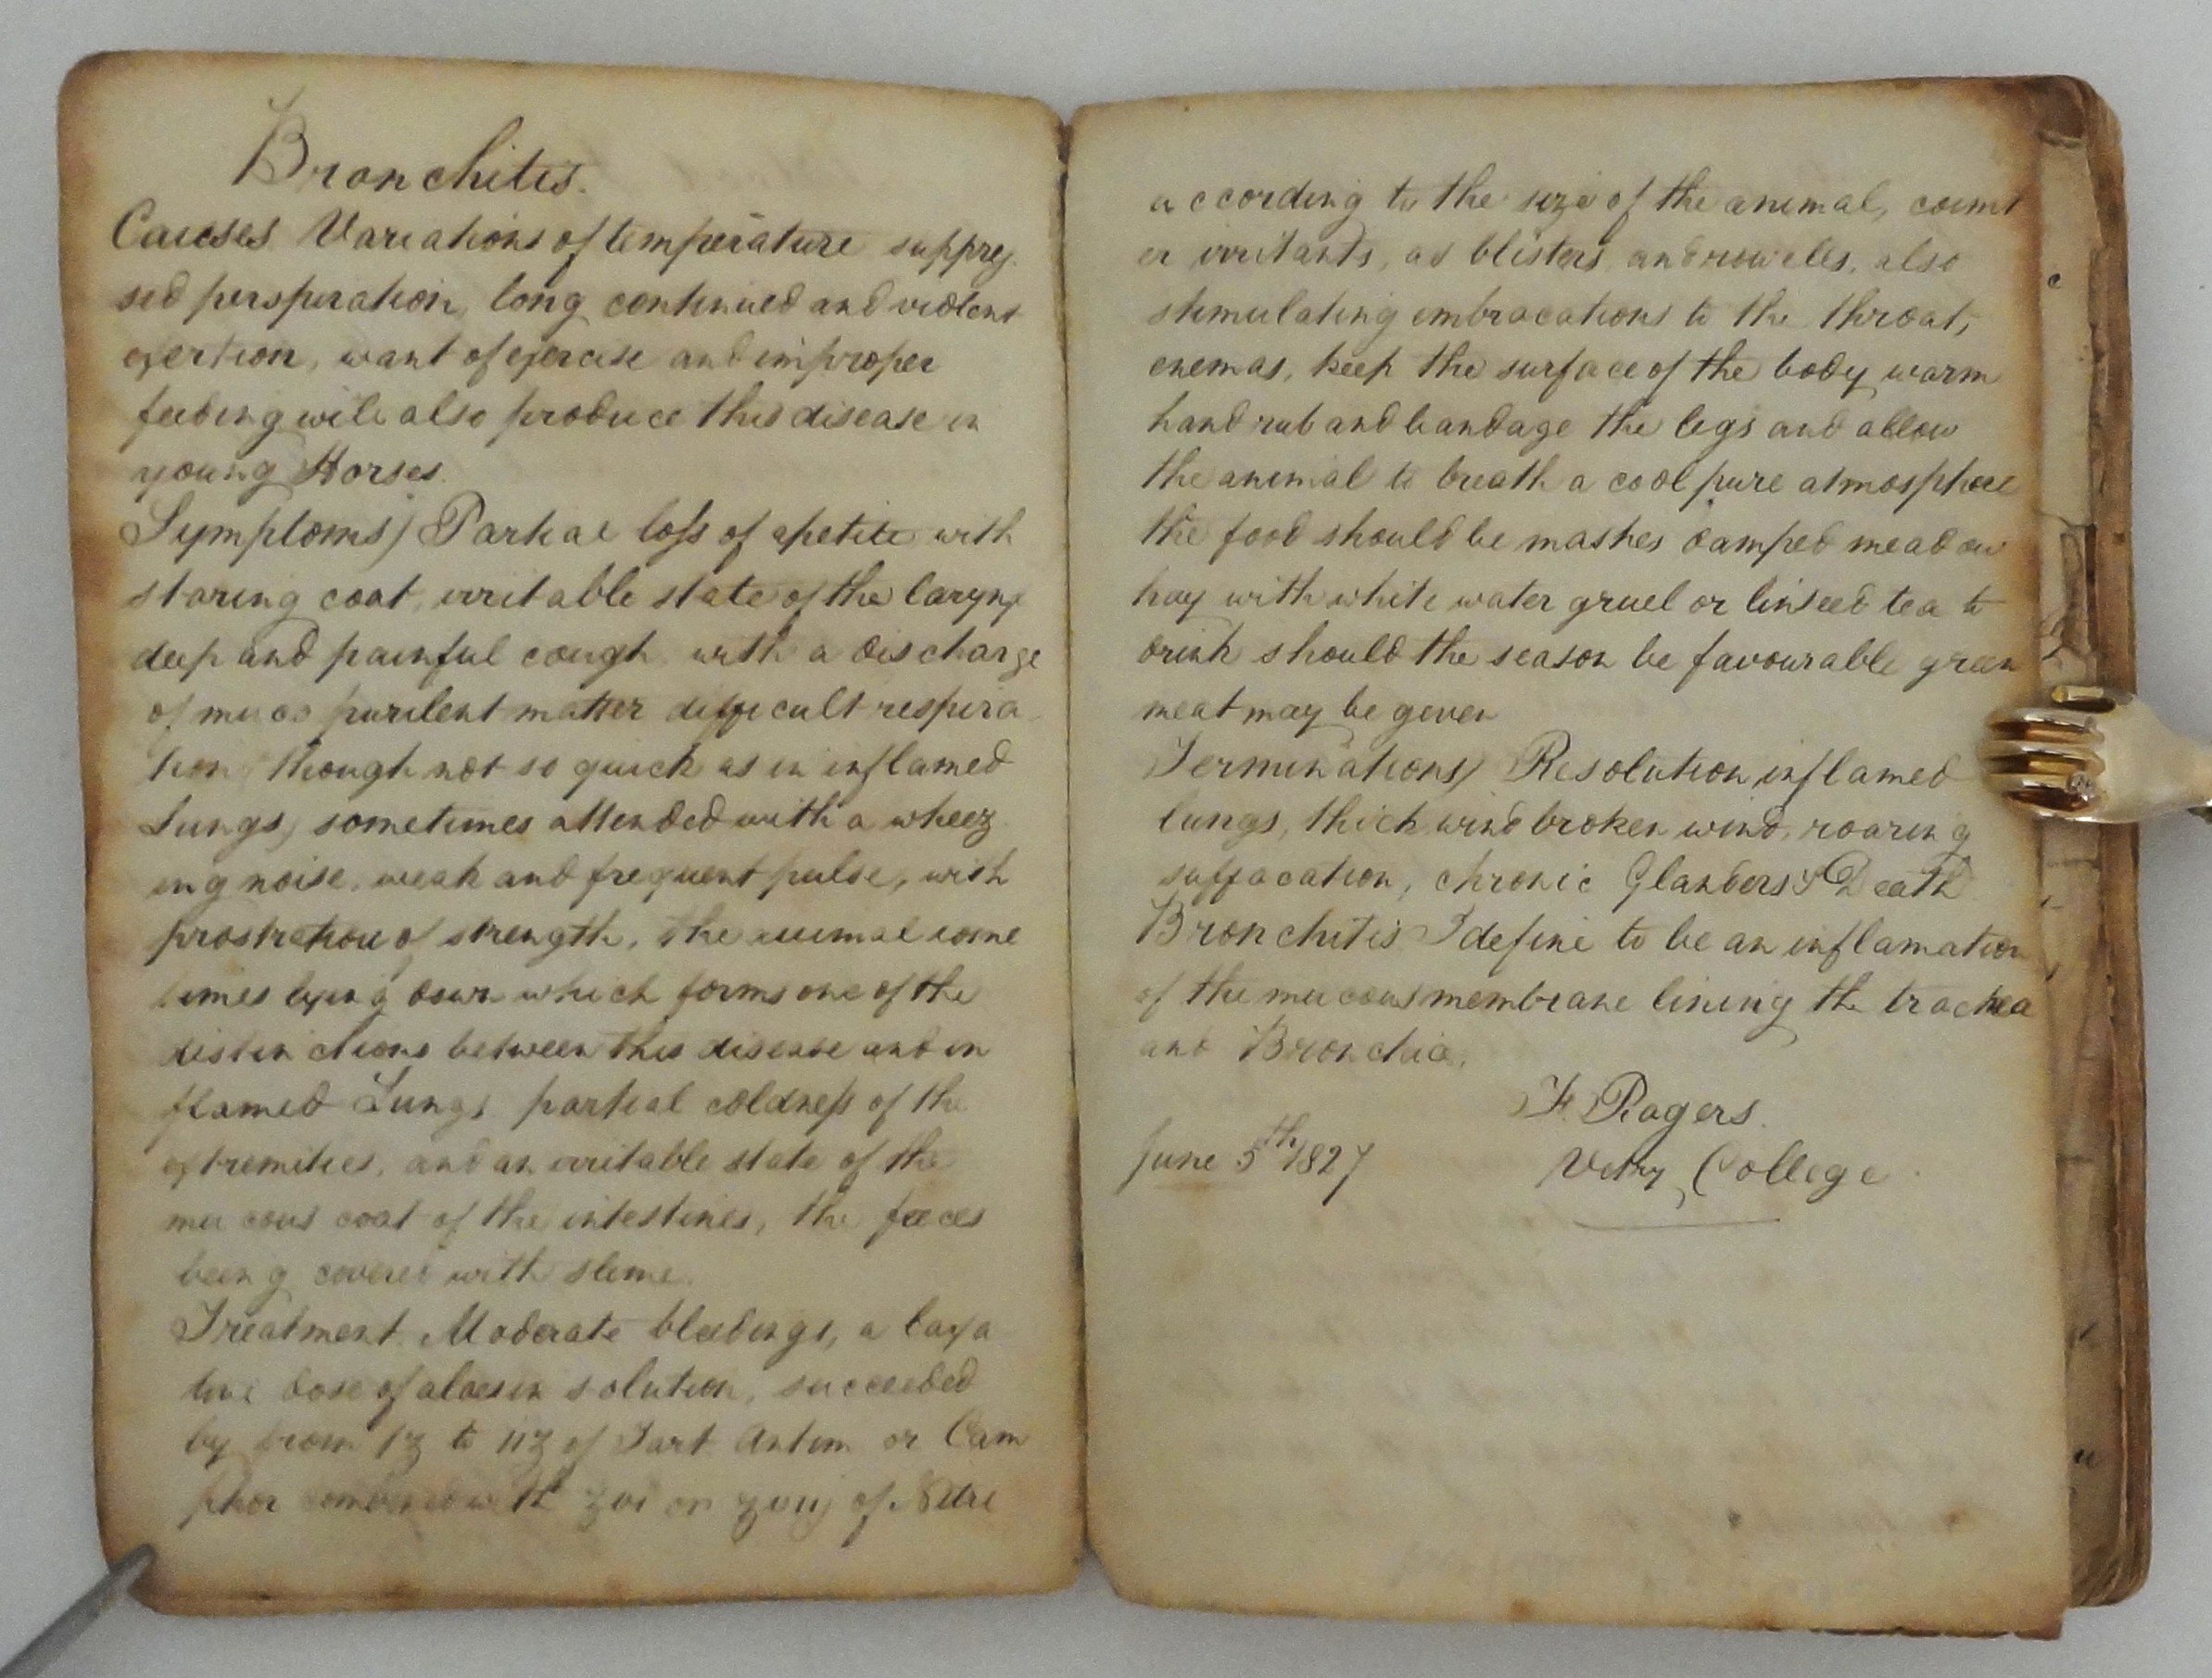 Bronchitis.
Causes Variations of temperature suppres
sed perspiration, long continued and violent
exertion, want of exercise and improper
feeding will also produce this disease in
young Horses.
Symptoms) Partial loss of apetite with
staring coat, irritable state of the larynx
deep and painful cough with a discharge
of muco purilent matter difficult respira
tion, though not so quick as in inflamed
Lungs, sometimes attended with a wheez
ing noise, weak and frequent pulse, with
prostretion of strength, the animal some
times lying down which forms one of the
distinctions between this disease and in
flamed Lungs partial coldness of the
extremities, and an irritable state of the
mucous coat of the intestines, the fœces
being covered with slime.
Treatment. Moderate bleedings, a laxa
tive dose of aloes in solution, succeeded
by from to of Tart Antim or Cam
phor combined with of Nitre
according to the size of the animal, count
er irritants, as blisters and rowells, also
stimulating embracations to the throat,
enemas, keep the surface of the body warm
hand rub and bandage the legs and allow
the animal to breath a cool pure atmosphere
the food should be mashes damped meadow
hay with white water gruel or linseed tea to
drink should the season be favourable green
meat may be given
Terminations) Resolution, inflamed
lungs, thick wind broken wind, roaring
suffacation, chronic Glanders & Death
Bronchitis I define to be an inflamation
of the mucous membrane lining the trachea
and Bronchia.
F. Rogers.
June 5th 1827 Vetry College